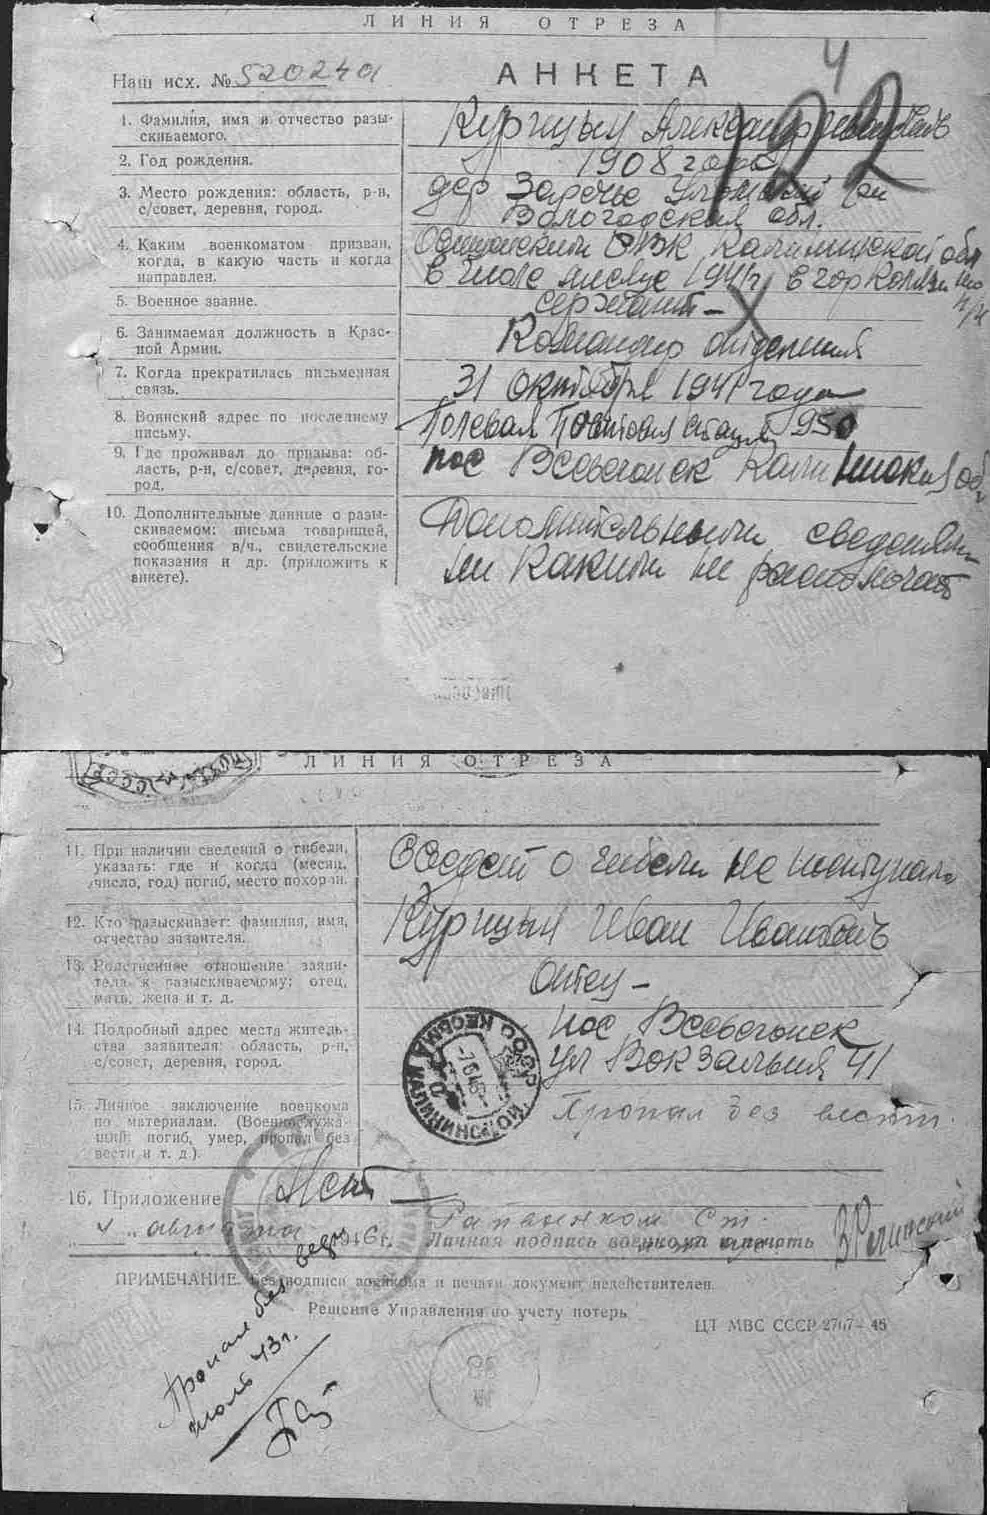 ЛИНИЯ ОТРЕЗА
Наш исх. № 520240
АНКЕТА
4
122
1. Фамилия, имя и отчество разы-
скиваемого.
Курицын Александр Ивановичъ
2. Год рождения.
1908 года
3. Место рождения: область, р-н,
с/совет, деревня, город.
дер Заречье район
Вологодская обл.
4. Каким военкоматом призван,
когда, в какую часть и когда
направлен.
РВК Калининской обл
в июле месяце 1941 г. в гор
5. Военное звание.
сержант –
6. Занимаемая должность в Крас-
ной Армии.
Командир отделения
7. Когда прекратилась письменная
связь.
31 октября 1941 года
8. Воинский адрес по последнему
письму.
Полевая Почтовая станция 950
9. Где проживал до призыва: об-
ласть, р-н, с/совет, деревня, го-
род.
пос Весьегонск Калининская об
10. Дополнительные данные о разы-
скиваемом: письма товарищей,
сообщения в/ч., свидетельские
показания и др. (приложить к
анкете).
Дополнительными сведениями
ни какими не располагаю
ЛИНИЯ ОТРЕЗА
11. При наличии сведений о гибели,
указать: где и когда (месяц,
число, год) погиб, место похорон.
Сведений о гибели не поступало
12. Кто разыскивает: фамилия, имя,
отчество заявителя.
Курицын Иван Ивановичъ
13. Родственное отношение заяви-
теля к разыскиваемому: отец,
мать, жена и т. д.
Отец –
14. Подробный адрес места житель-
ства заявителя: область, р-н,
с/совет, деревня, город.
пос Весьегонск
ул Вокзальная 41
КАЛИНИНСКОЙ
СССР
15. Личное заключение военкома
по материалам. (Военнослужа-
щий: погиб, умер, пропал без
вести и т. д.).
Пропал без вести.
16. Приложение Нет
„4„ августа 1946 г.
Личная подпись военкома и печать
ПРИМЕЧАНИЕ. Без подписи военкома и печати документ недействителен.
Решение Управления по учету потерь
ЦТ МВС СССР 2767–45
Пропал без вести
июль 43 г.